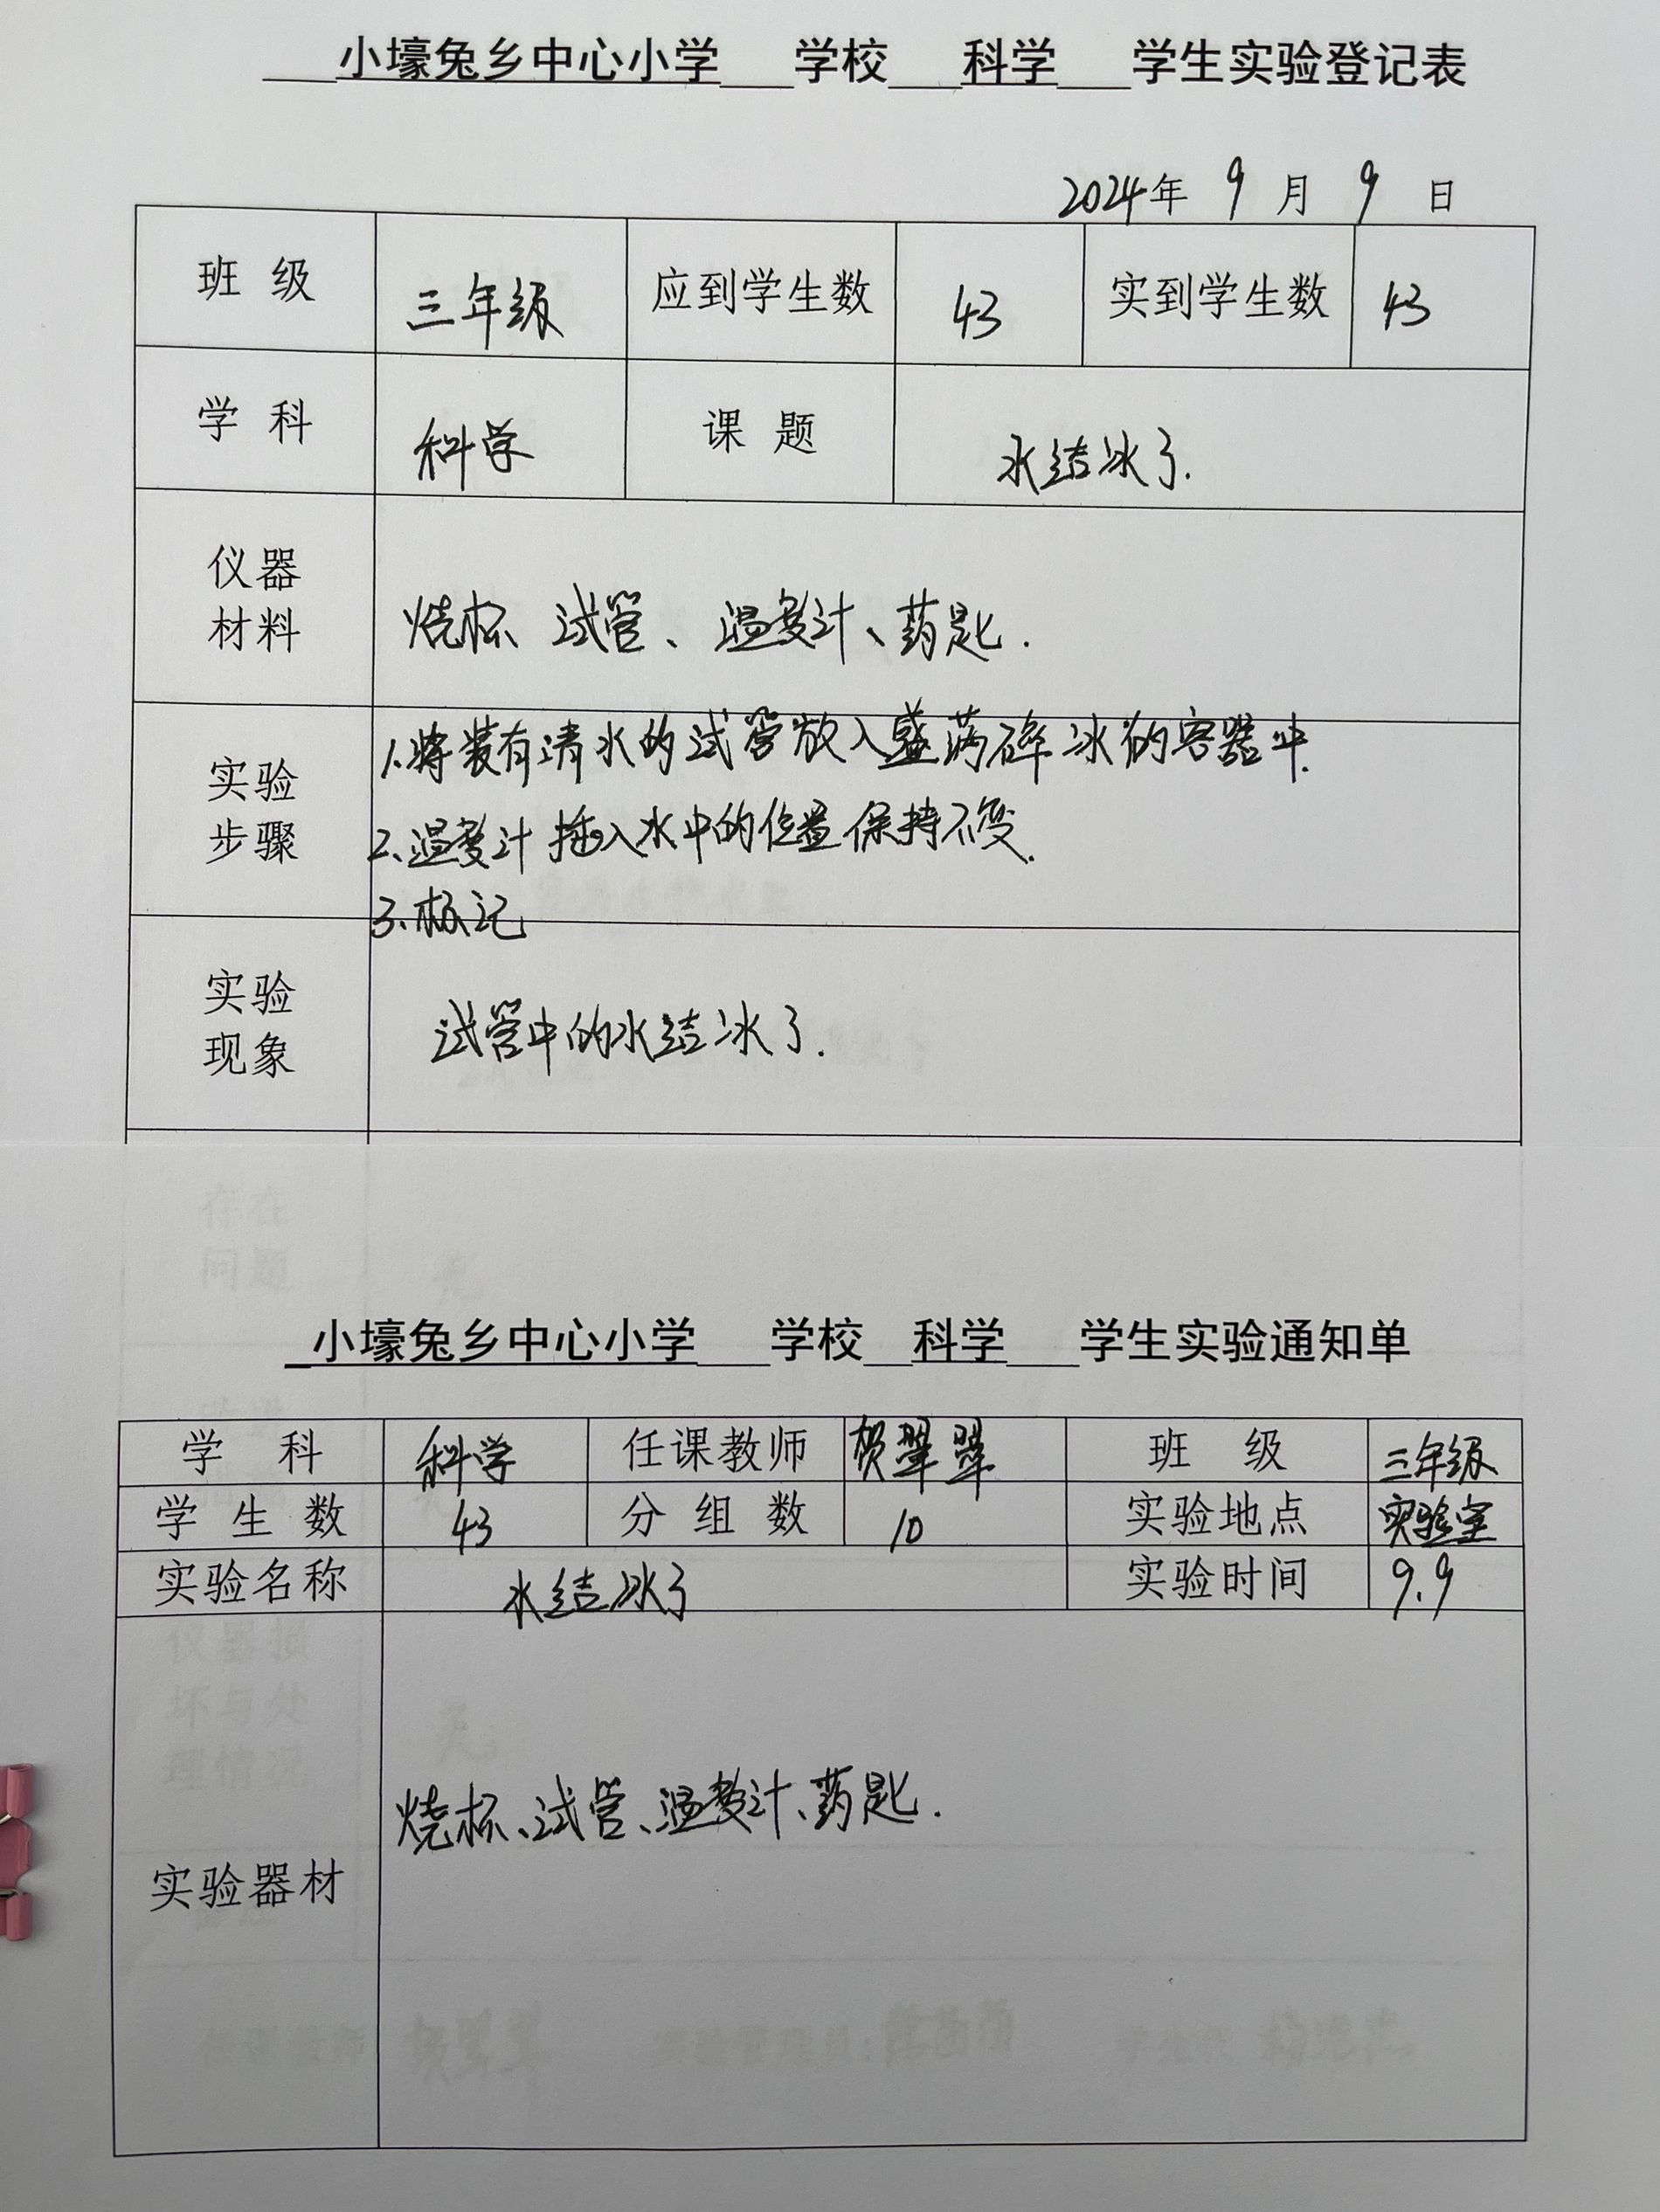 小壕兔乡中心小学 学校 科学 学生实验登记表
2024年 9 月 9 日
班 级 三年级 应到学生数 43 实到学生数 43
学 科 科学 课 题 水结冰了.
仪器
材料
烧杯 试管、温度计、药匙.
实验
步骤
1.将装有清水的试管放入盛满碎冰的容器中.
2.温度计插入水中的位置保持不变.
3.标记
实验
现象
试管中的水结冰了.
小壕兔乡中心小学 学校 科学 学生实验通知单
学 科 科学 任课教师 贺翠翠 班 级 三年级
学 生 数 43 分 组 数 10 实验地点 实验室
实验名称 水结冰了 实验时间 9.9
实验器材 烧杯、试管、温度计、药匙.